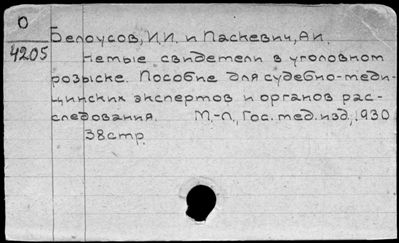 О
4205
Белоусов, И.И. и Паскевич, А.И.
Немые свидетели в уголовном
розыске. Пособие для судебно-меди-
цинских экспертов и органов рас-
следования. М.-Л., Гос. мед. изд., 1930
38 стр.